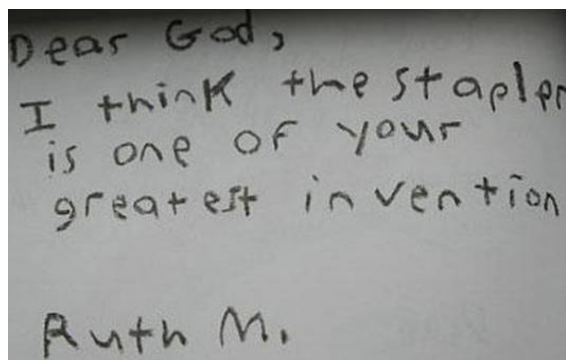 Dear God,
I think the stapler
is one of your
greatest invention

Ruth M.